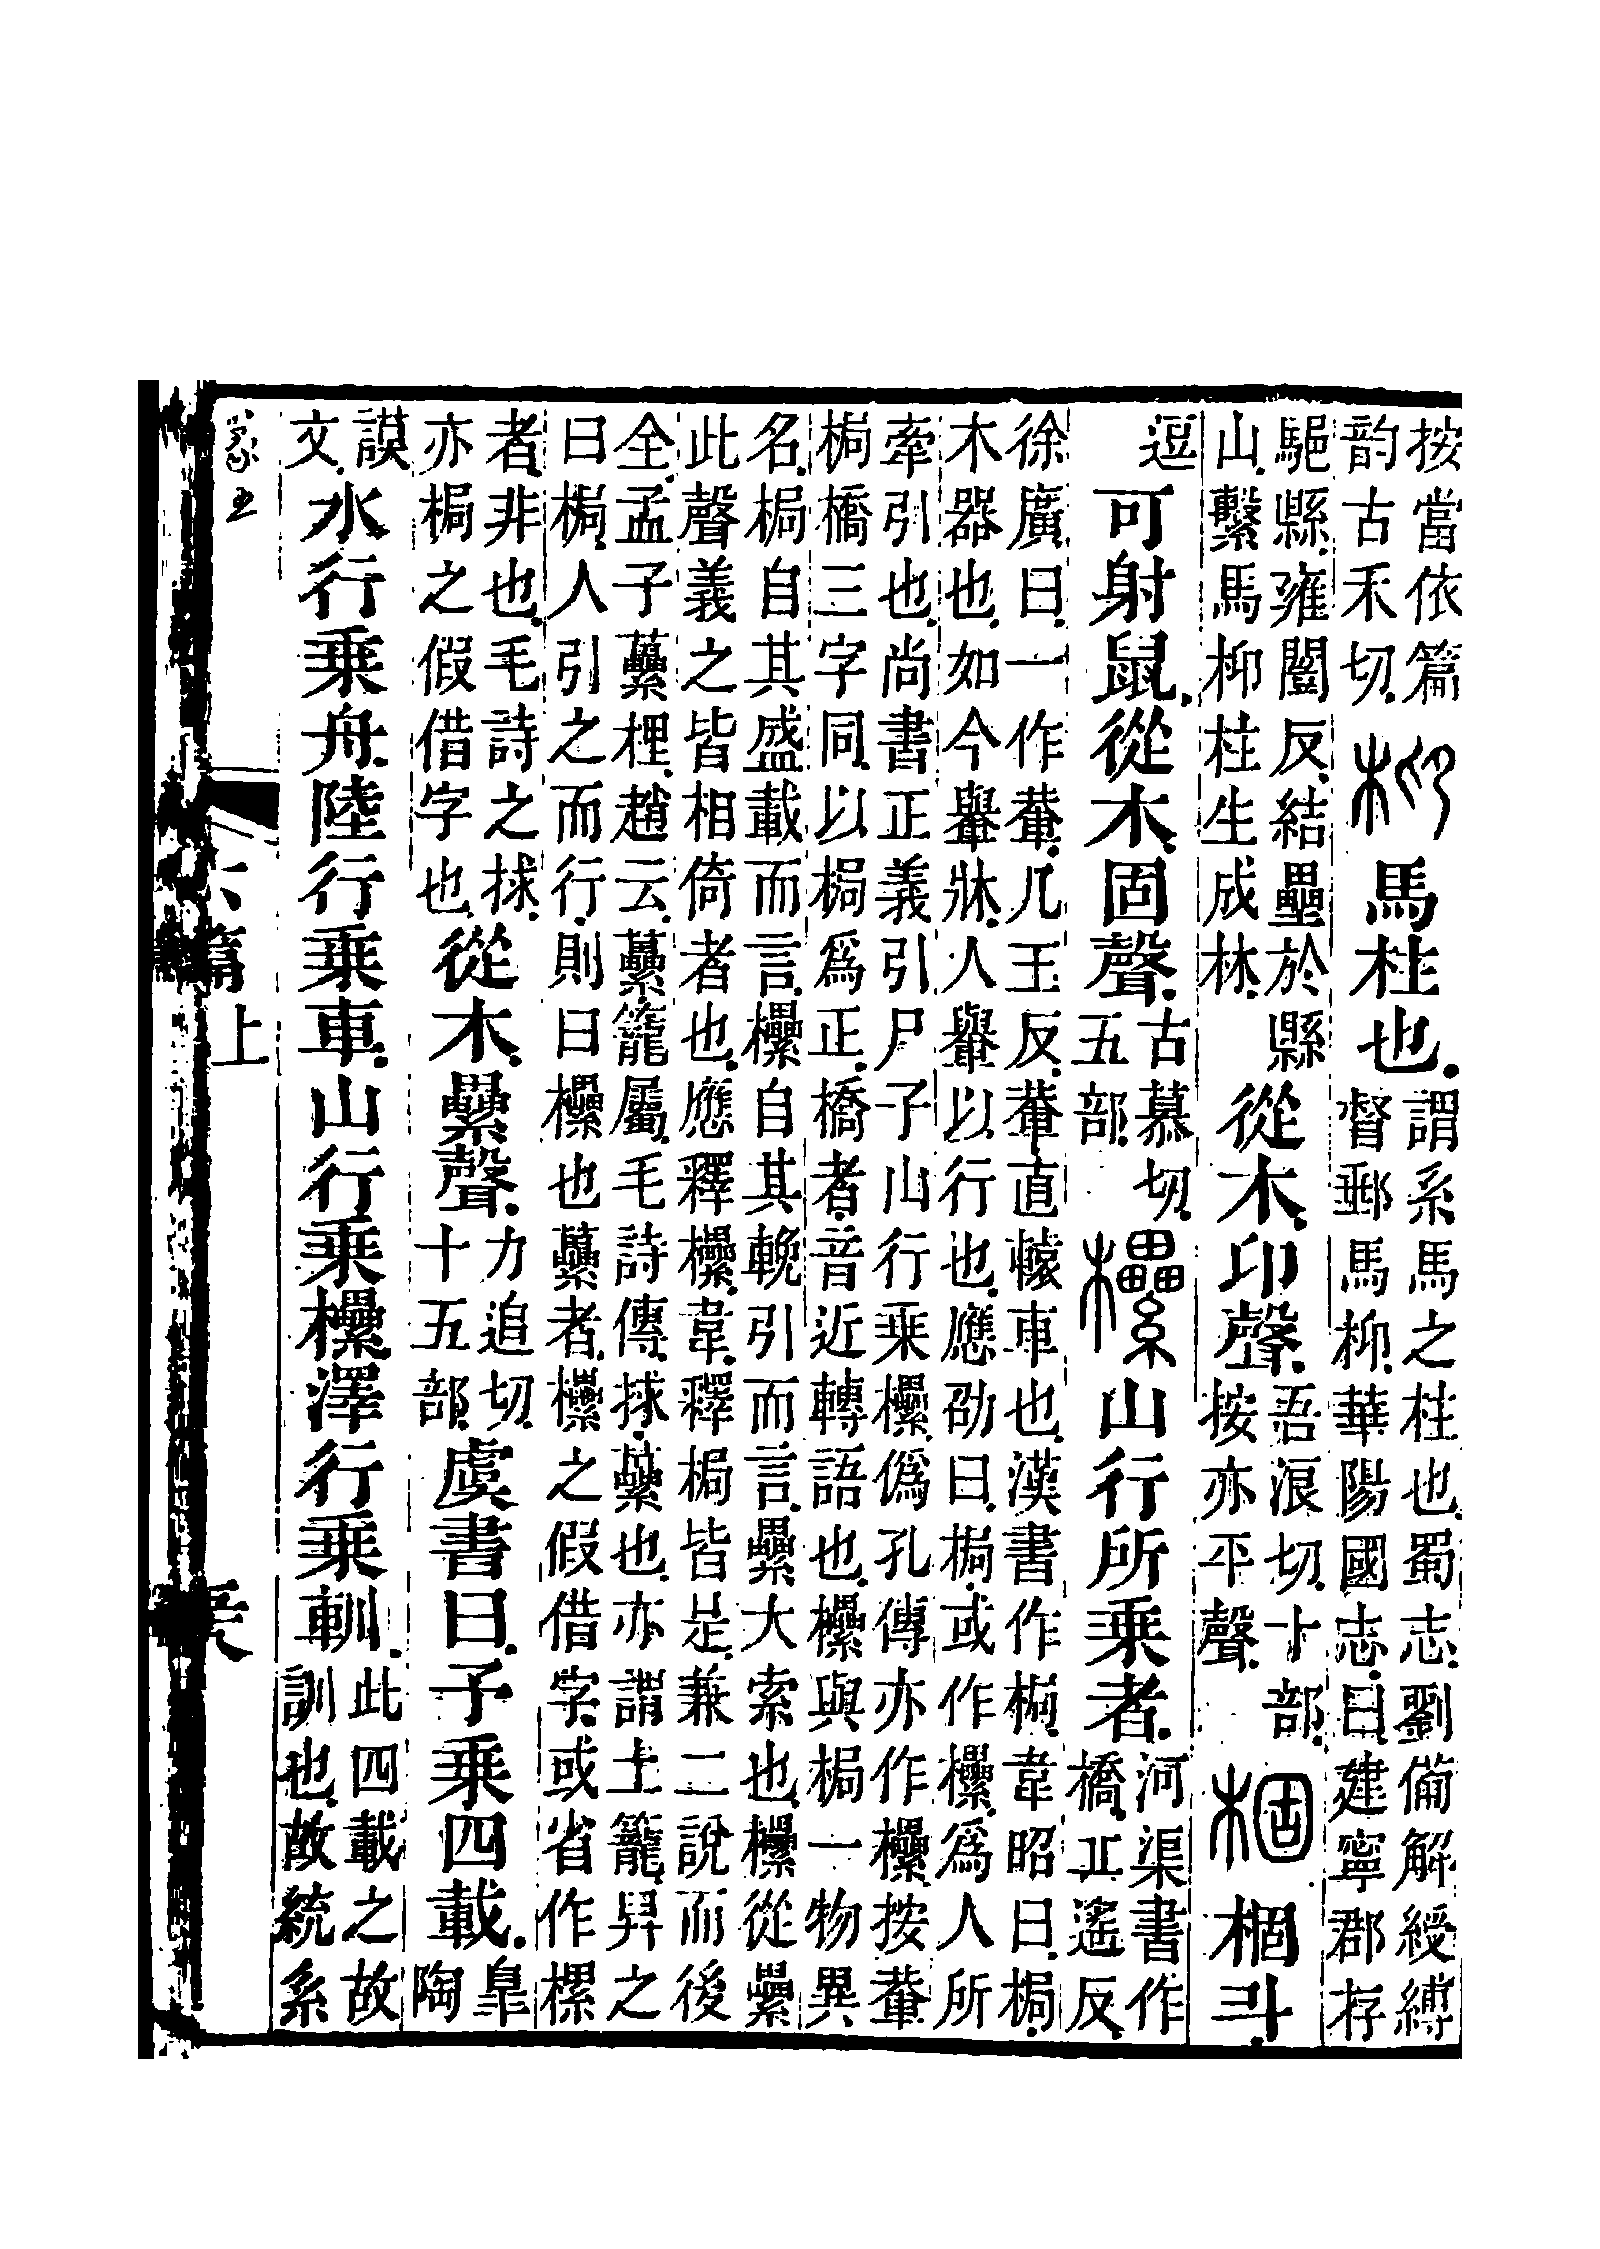 按當依篇
韵古禾切
枊
馬柱也
謂系馬之柱也蜀志劉備解綬縛
督郵馬枊華陽國志曰建寧郡存
䮍縣雍闓反結壘於縣
山繫馬枊柱生成林
從木卬聲
吾浪切十部
按亦平聲
棝
棝斗
逗
可射鼠從木固聲
古慕切
五部
欙
山行所乘者
河渠書作
橋丘遙反
徐廣曰一作輂几玉反輂直轅車也漢書作梮韋昭曰梮
木器也如今轝牀人轝以行也應劭曰梮或作欙爲人所
牽引也尚書正義引尸子山行乘欙僞孔傳亦作欙按輂
梮橋三字同以梮爲正橋者音近轉語也欙與梮一物異
名梮自其盛載而言欙自其輓引而言纍大索也欙從纍
此聲義之皆相倚者也應釋欙韋釋梮皆是兼二說而後
全孟子虆梩趙云虆籠屬毛詩傳捄虆也亦謂土籠舁之
曰梮人引之而行則曰欙也虆者欙之假借字或省作樏
者非也毛詩之捄
亦梮之假借字也
從木纍聲
力追切
十五部
虞書曰予乘四載
皋
陶
謨
文
水行乘舟陸行乘車山行乘欙澤行乘䡅
此四載之故
訓也故統系
六篇上